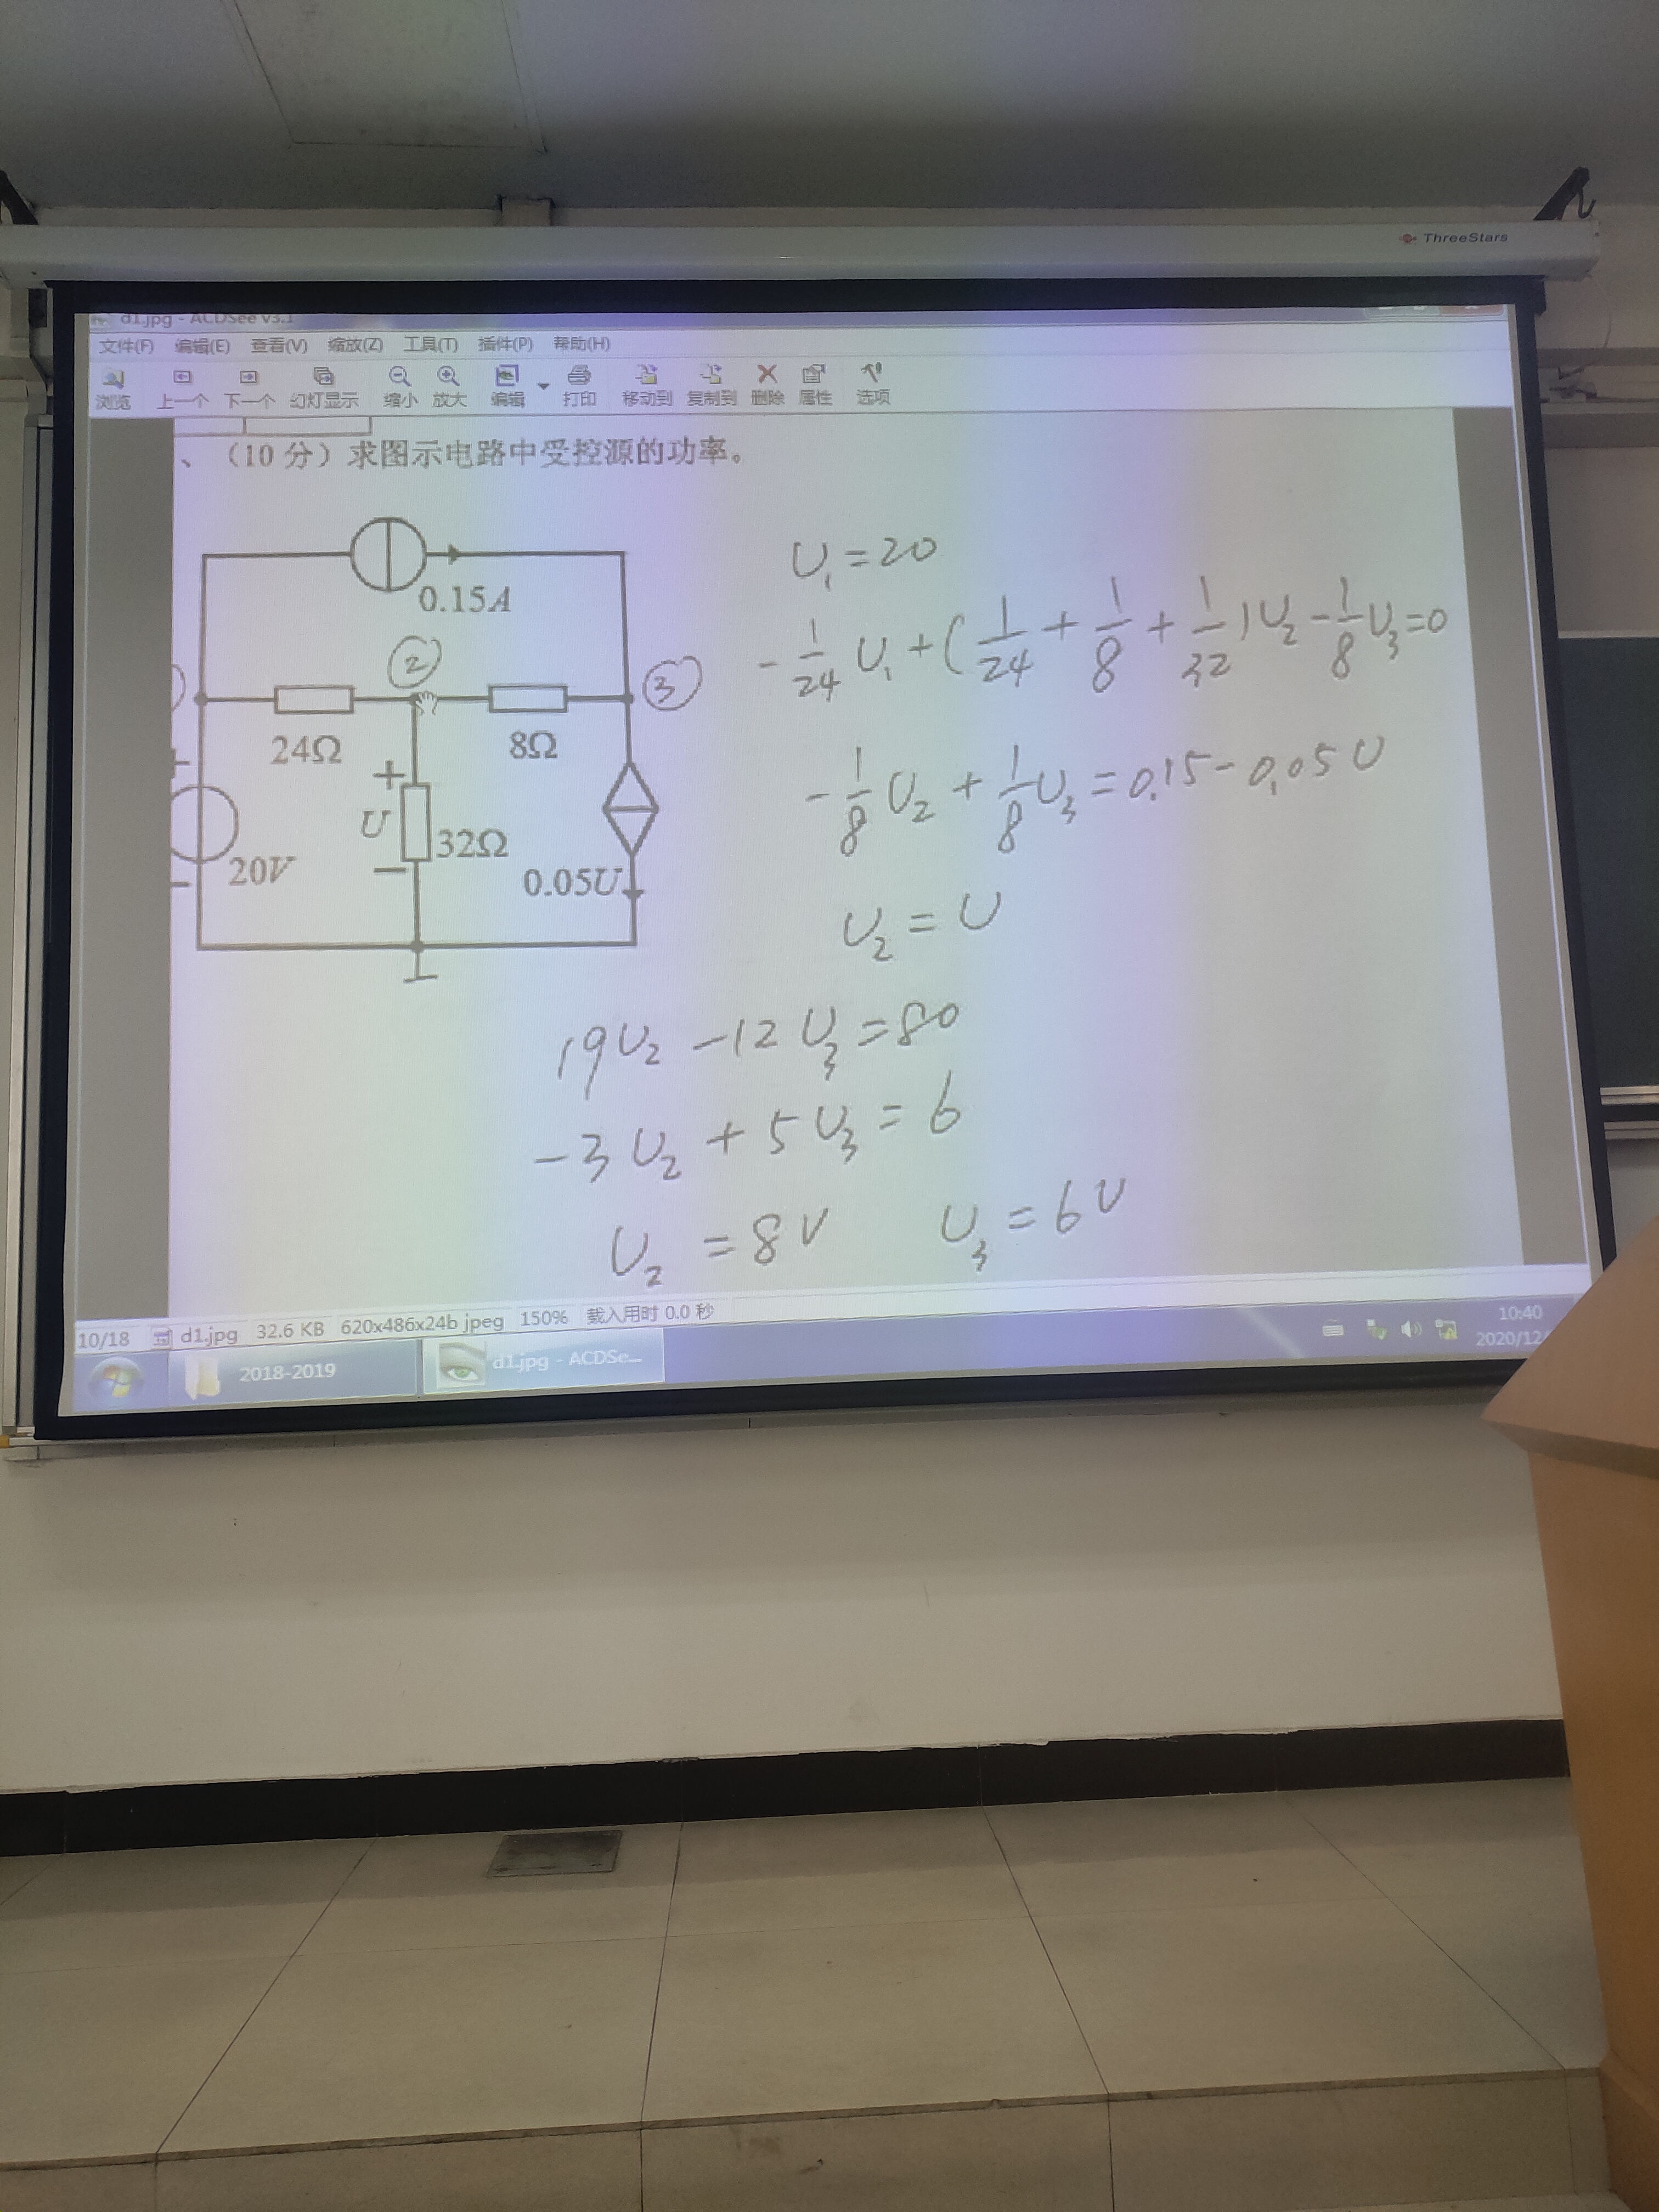 ThreeStars
d1.jpg - ACDSee v3.1
文件(F) 编辑(E) 查看(V) 缩放(Z) 工具(T) 插件(P) 帮助(H)
浏览 上一个 下一个 幻灯显示 缩小 放大 编辑 打印 移动到 复制到 删除 属性 选项
、（10分）求图示电路中受控源的功率。
0.15A
②
③
24Ω
8Ω
+
U
−
32Ω
20V
0.05U
U₁=20
-1/24 U₁+(1/24+1/8+1/32)U₂-1/8 U₃=0
-1/8 U₂+1/8 U₃=0.15-0.05U
U₂=U
19U₂-12U₃=80
-3U₂+5U₃=6
U₂=8V U₃=6V
10/18 d1.jpg 32.6 KB 620x486x24b jpeg 150% 载入用时 0.0 秒
2018-2019 d1.jpg - ACDSe...
10:40
2020/12/